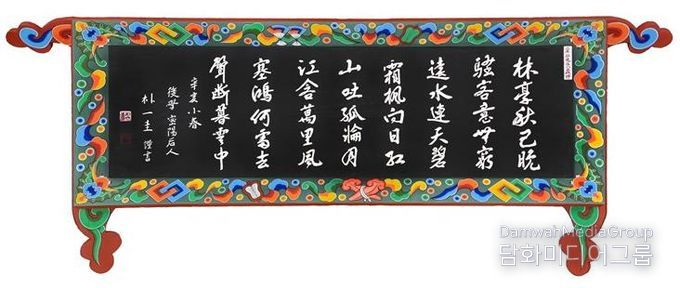 林亭秋已晩
騷客意無窮
遠水連天碧
霜楓向日紅
山吐孤輪月
江含萬里風
塞鴻何處去
聲斷暮雲中
辛亥小春
後學 密陽后人
朴一圭 謹書
DamwahMediaGroup
담화미디어그룹